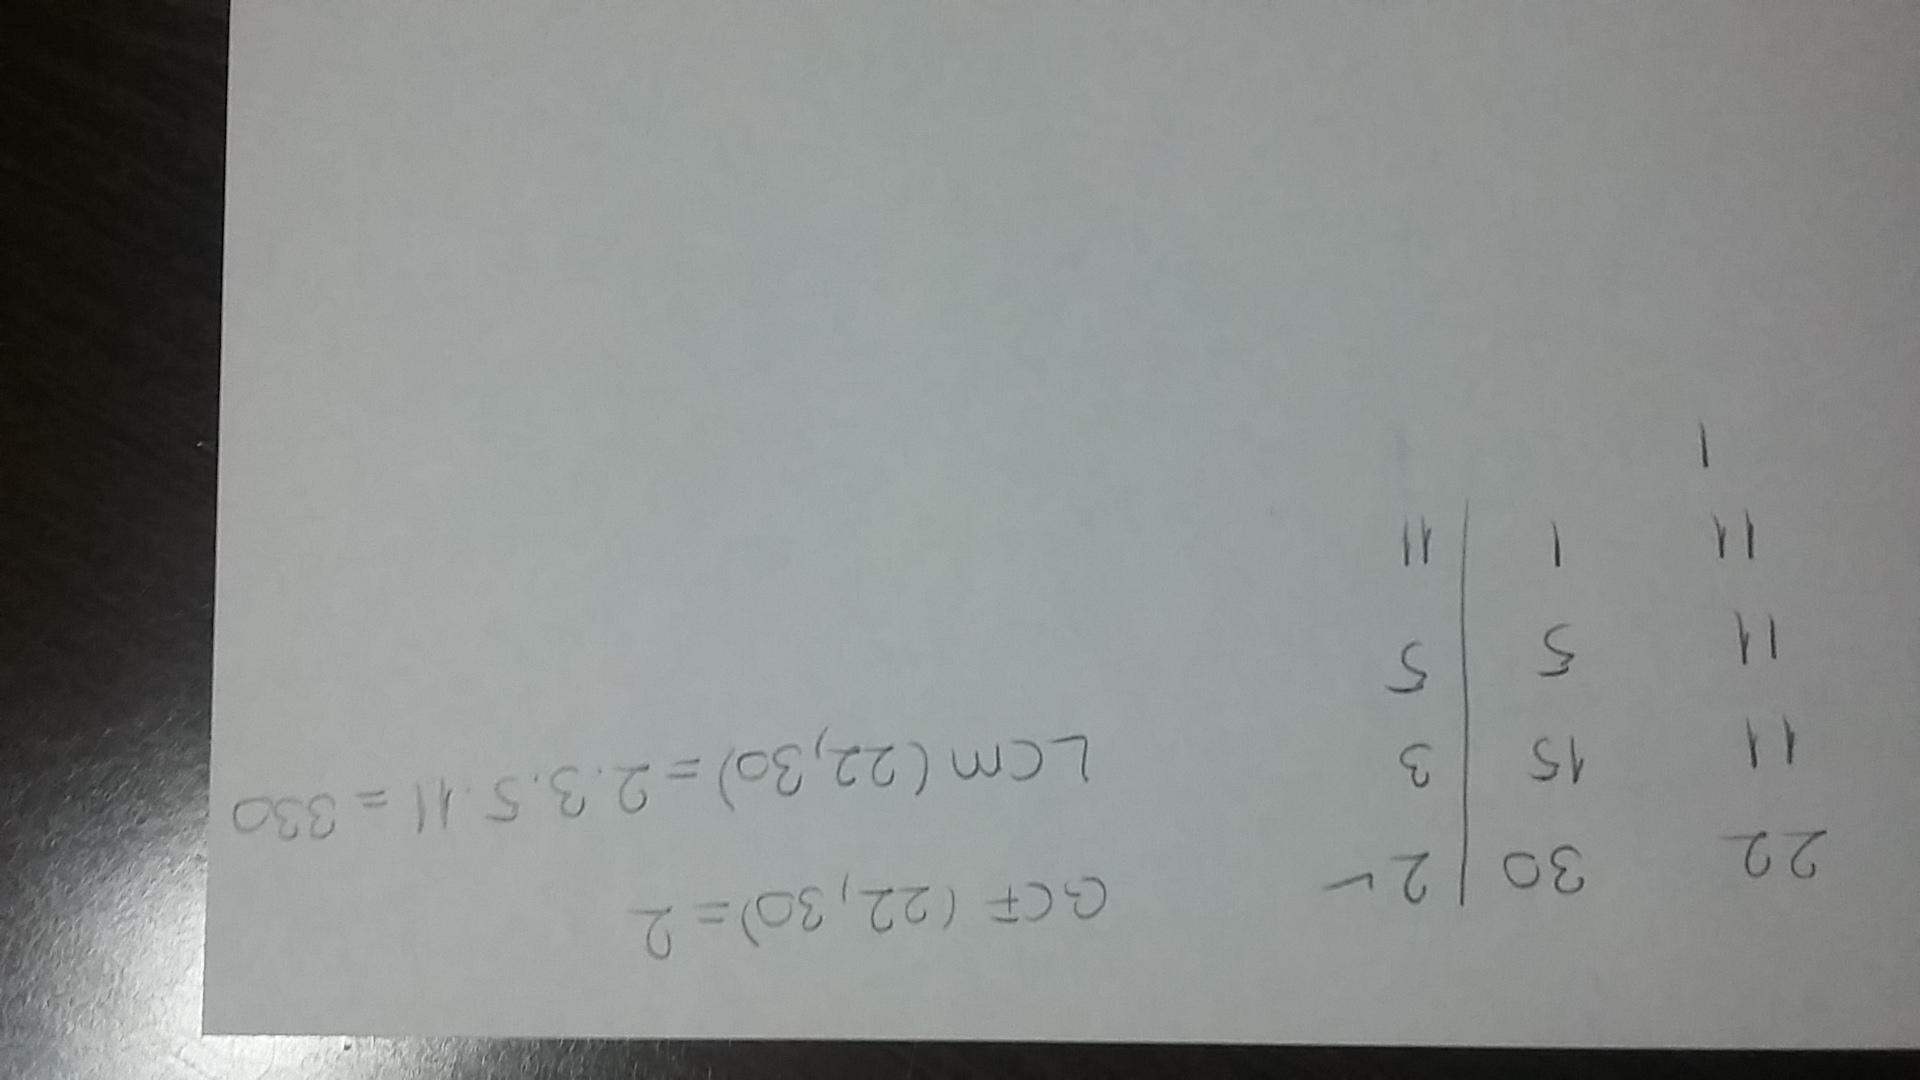 22 30 | 2 ✓ GCF (22,30) = 2
11 15 | 3 LCM (22,30) = 2.3.5.11 = 330
11 5 | 5
11 1 | 11
1